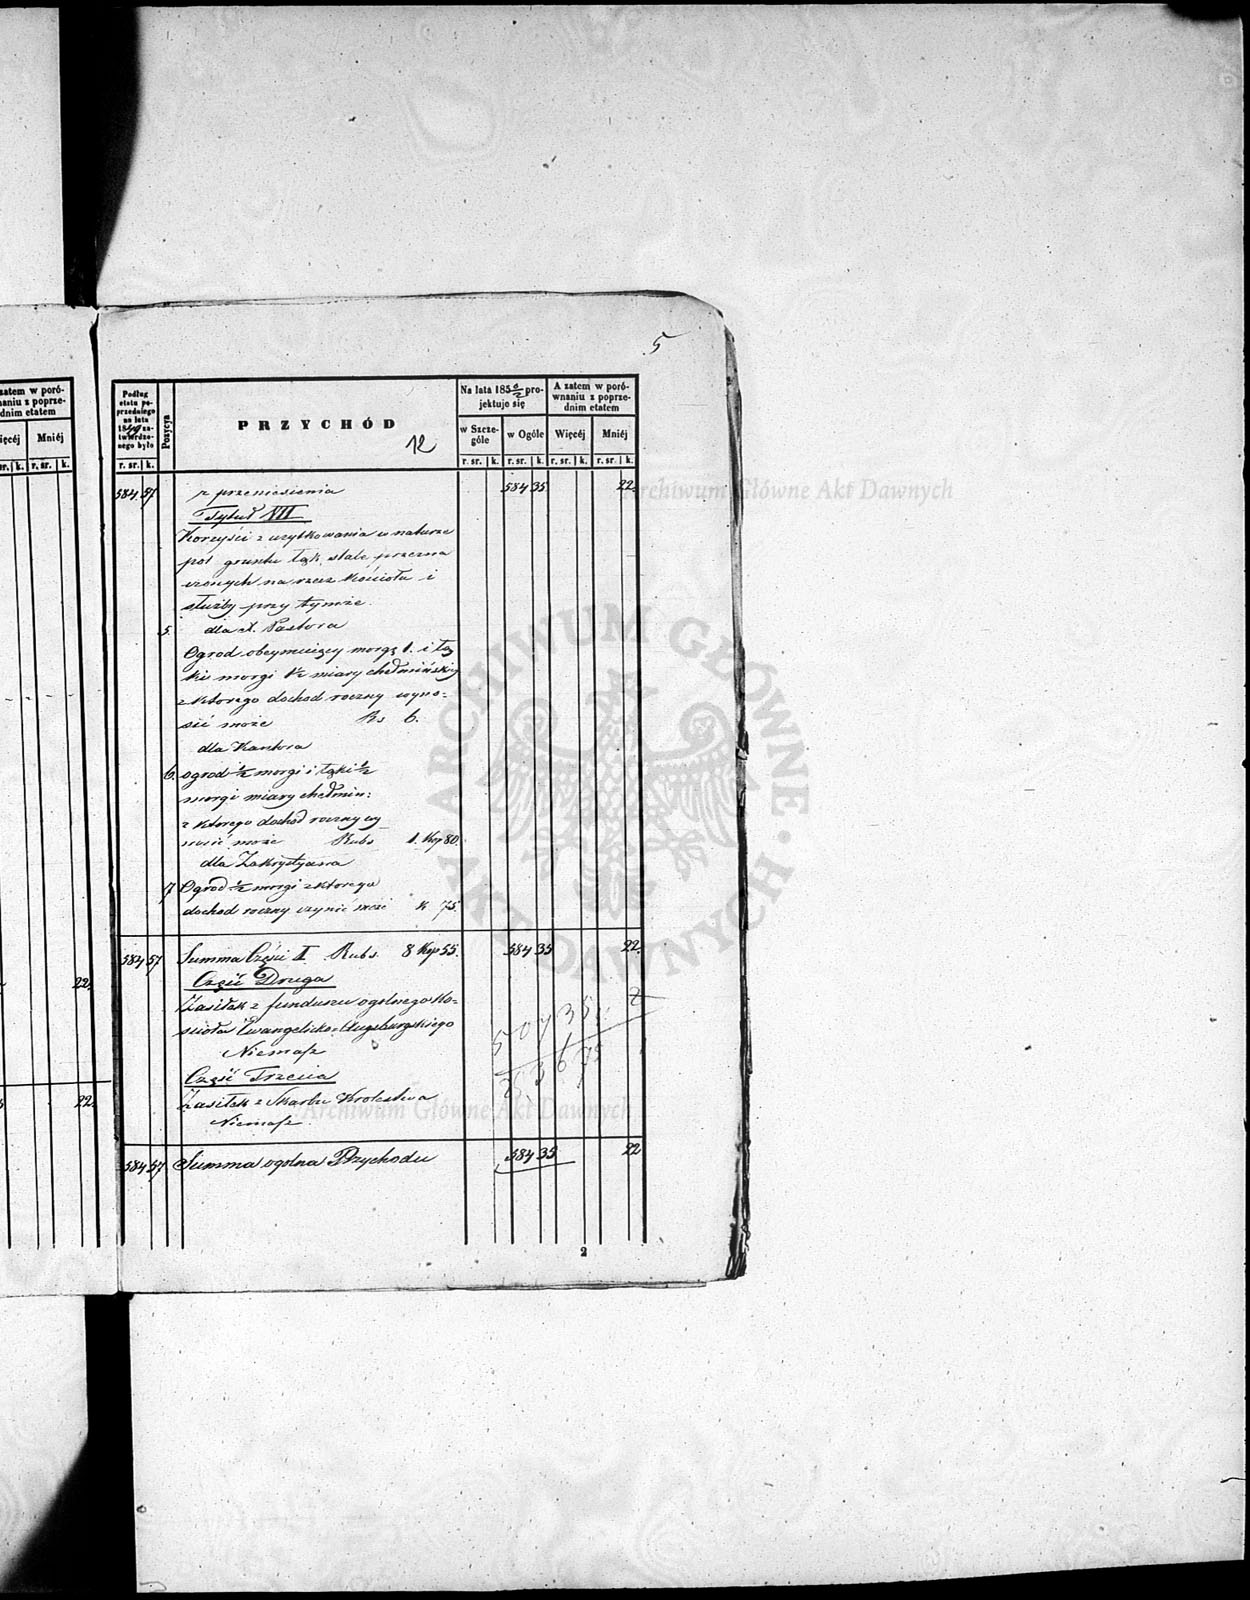 5
zatem w poró-
naniu z poprze-
dnim etatem
ięcéj Mniéj
sr. k. r. sr. k.
22.
22.
Podług
etatu po-
przedniego
na lata
za-
twierdzo-
nego było
r. sr. k.
Pozycya
PRZYCHÓD
12
Na lata 185 0/2 pro-
jektuje się
w Szcze-
góle
w Ogóle
r. sr. k. r. sr. k.
A zatem w poró-
wnaniu z poprze-
dnim etatem
Więcéj Mniéj
r. sr. k. r. sr. k.
584 57 z przeniesienia 584 35 22.
Tytuł VII
Korzyści z użytkowania w naturze
pól gruntu łąk, stale przezna
czonych na rzecz Kościoła i
służby przy tymże.
5. dla X. Pastora
Ogrod obeymuiący morgę 1. i łą
ki morgi ½ miary chełmińskiy
z ktorego dochod roczny wyno-
sić może Rs 6.
dla Kantora
6. ogrod ½ morgi i łąki ½
morgi miary chełmin:
z ktorego dochod roczny wy
nosić może Rubs 1. Kop 80.
dla Zakrystyana
7 Ogrod ½ morgi z ktorego
dochod roczny czynić może K 75.
584 57 Summa Części I Rubs. 8 Kop 55. 584 35 22.
Część Druga
Zasiłek z funduszu ogolnego Ko-
scioła Ewangelicko-Augsburgskiego
Niemasz
Część Trzecia
Zasiłek z Skarbu Krolestwa
Niemasz.
584 57 Summa ogolna Przychodu 584 35 22
2
Archiwum Główne Akt Dawnych
Archiwum Główne Akt Dawnych
ARCHIWUM GŁÓWNE AKT DAWNYCH